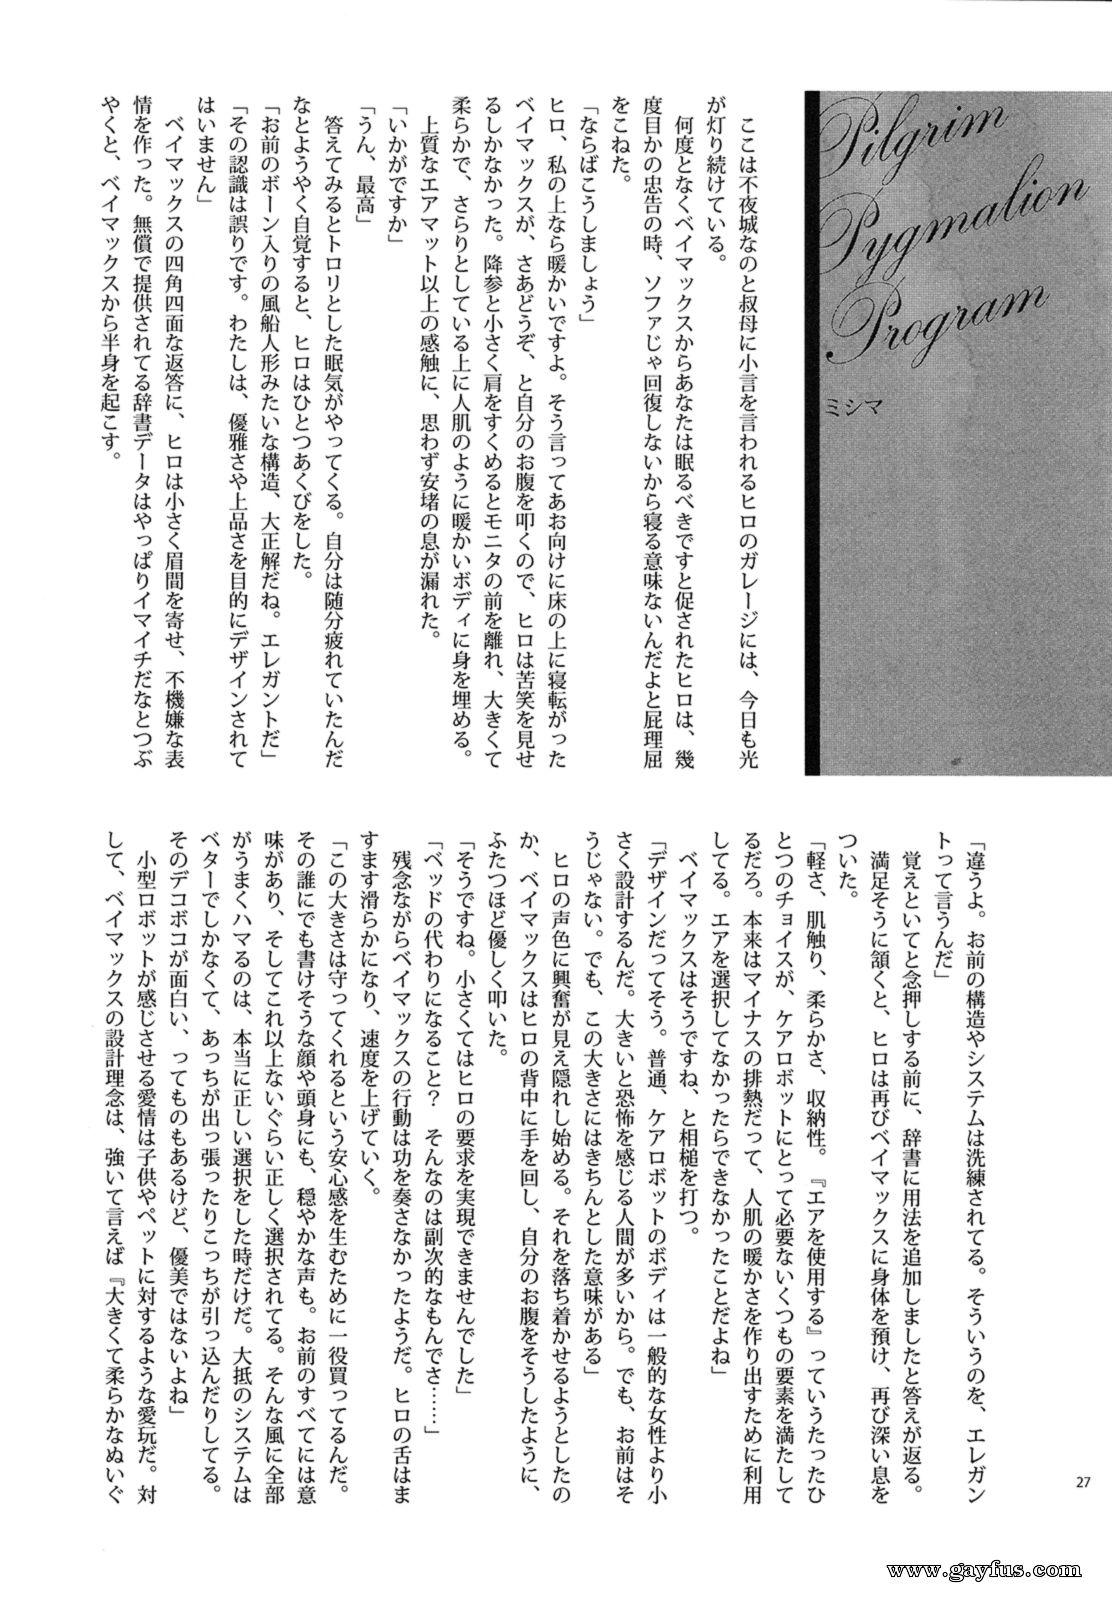 Pilgrim
Pygmalion
Program
ミシマ
　ここは不夜城なのと叔母に小言を言われるヒロのガレージには、今日も光
が灯り続けている。
　何度となくベイマックスからあなたは眠るべきですと促されたヒロは、幾
度目かの忠告の時、ソファじゃ回復しないから寝る意味ないんだよと屁理屈
をこねた。
「ならばこうしましょう」
ヒロ、私の上なら暖かいですよ。そう言ってあお向けに床の上に寝転がった
ベイマックスが、さあどうぞ、と自分のお腹を叩くので、ヒロは苦笑を見せ
るしかなかった。降参と小さく肩をすくめるとモニタの前を離れ、大きくて
柔らかで、さらりとしている上に人肌のように暖かいボディに身を埋める。
　上質なエアマット以上の感触に、思わず安堵の息が漏れた。
「いかがですか」
「うん、最高」
　答えてみるとトロリとした眠気がやってくる。自分は随分疲れていたんだ
なとようやく自覚すると、ヒロはひとつあくびをした。
「お前のボーン入りの風船人形みたいな構造、大正解だね。エレガントだ」
「その認識は誤りです。わたしは、優雅さや上品さを目的にデザインされて
はいません」
　ベイマックスの四角四面な返答に、ヒロは小さく眉間を寄せ、不機嫌な表
情を作った。無償で提供されてる辞書データはやっぱりイマイチだなとつぶ
やくと、ベイマックスから半身を起こす。
「違うよ。お前の構造やシステムは洗練されてる。そういうのを、エレガン
トって言うんだ」
　覚えといてと念押しする前に、辞書に用法を追加しましたと答えが返る。
　満足そうに頷くと、ヒロは再びベイマックスに身体を預け、再び深い息を
ついた。
「軽さ、肌触り、柔らかさ、収納性。『エアを使用する』っていうたったひ
とつのチョイスが、ケアロボットにとって必要ないくつもの要素を満たして
るだろ。本来はマイナスの排熱だって、人肌の暖かさを作り出すために利用
してる。エアを選択してなかったらできなかったことだよね」
　ベイマックスはそうですね、と相槌を打つ。
「デザインだってそう。普通、ケアロボットのボディは一般的な女性より小
さく設計するんだ。大きいと恐怖を感じる人間が多いから。でも、お前はそ
うじゃない。でも、この大きさにはきちんとした意味がある」
　ヒロの声色に興奮が見え隠れし始める。それを落ち着かせるようとしたの
か、ベイマックスはヒロの背中に手を回し、自分のお腹をそうしたように、
ふたつほど優しく叩いた。
「そうですね。小さくてはヒロの要求を実現できませんでした」
「ベッドの代わりになること？　そんなのは副次的なもんでさ……」
　残念ながらベイマックスの行動は功を奏さなかったようだ。ヒロの舌はま
すます滑らかになり、速度を上げていく。
「この大きさは守ってくれるという安心感を生むために一役買ってるんだ。
その誰にでも書けそうな顔や頭身にも、穏やかな声も。お前のすべてには意
味があり、そしてこれ以上ないぐらい正しく選択されてる。そんな風に全部
がうまくハマるのは、本当に正しい選択をした時だけだ。大抵のシステムは
ベターでしかなくて、あっちが出っ張ったりこっちが引っ込んだりしてる。
そのデコボコが面白い、ってものもあるけど、優美ではないよね」
　小型ロボットが感じさせる愛情は子供やペットに対するような愛玩だ。対
して、ベイマックスの設計理念は、強いて言えば『大きくて柔らかなぬいぐ
27
www.gayfus.com